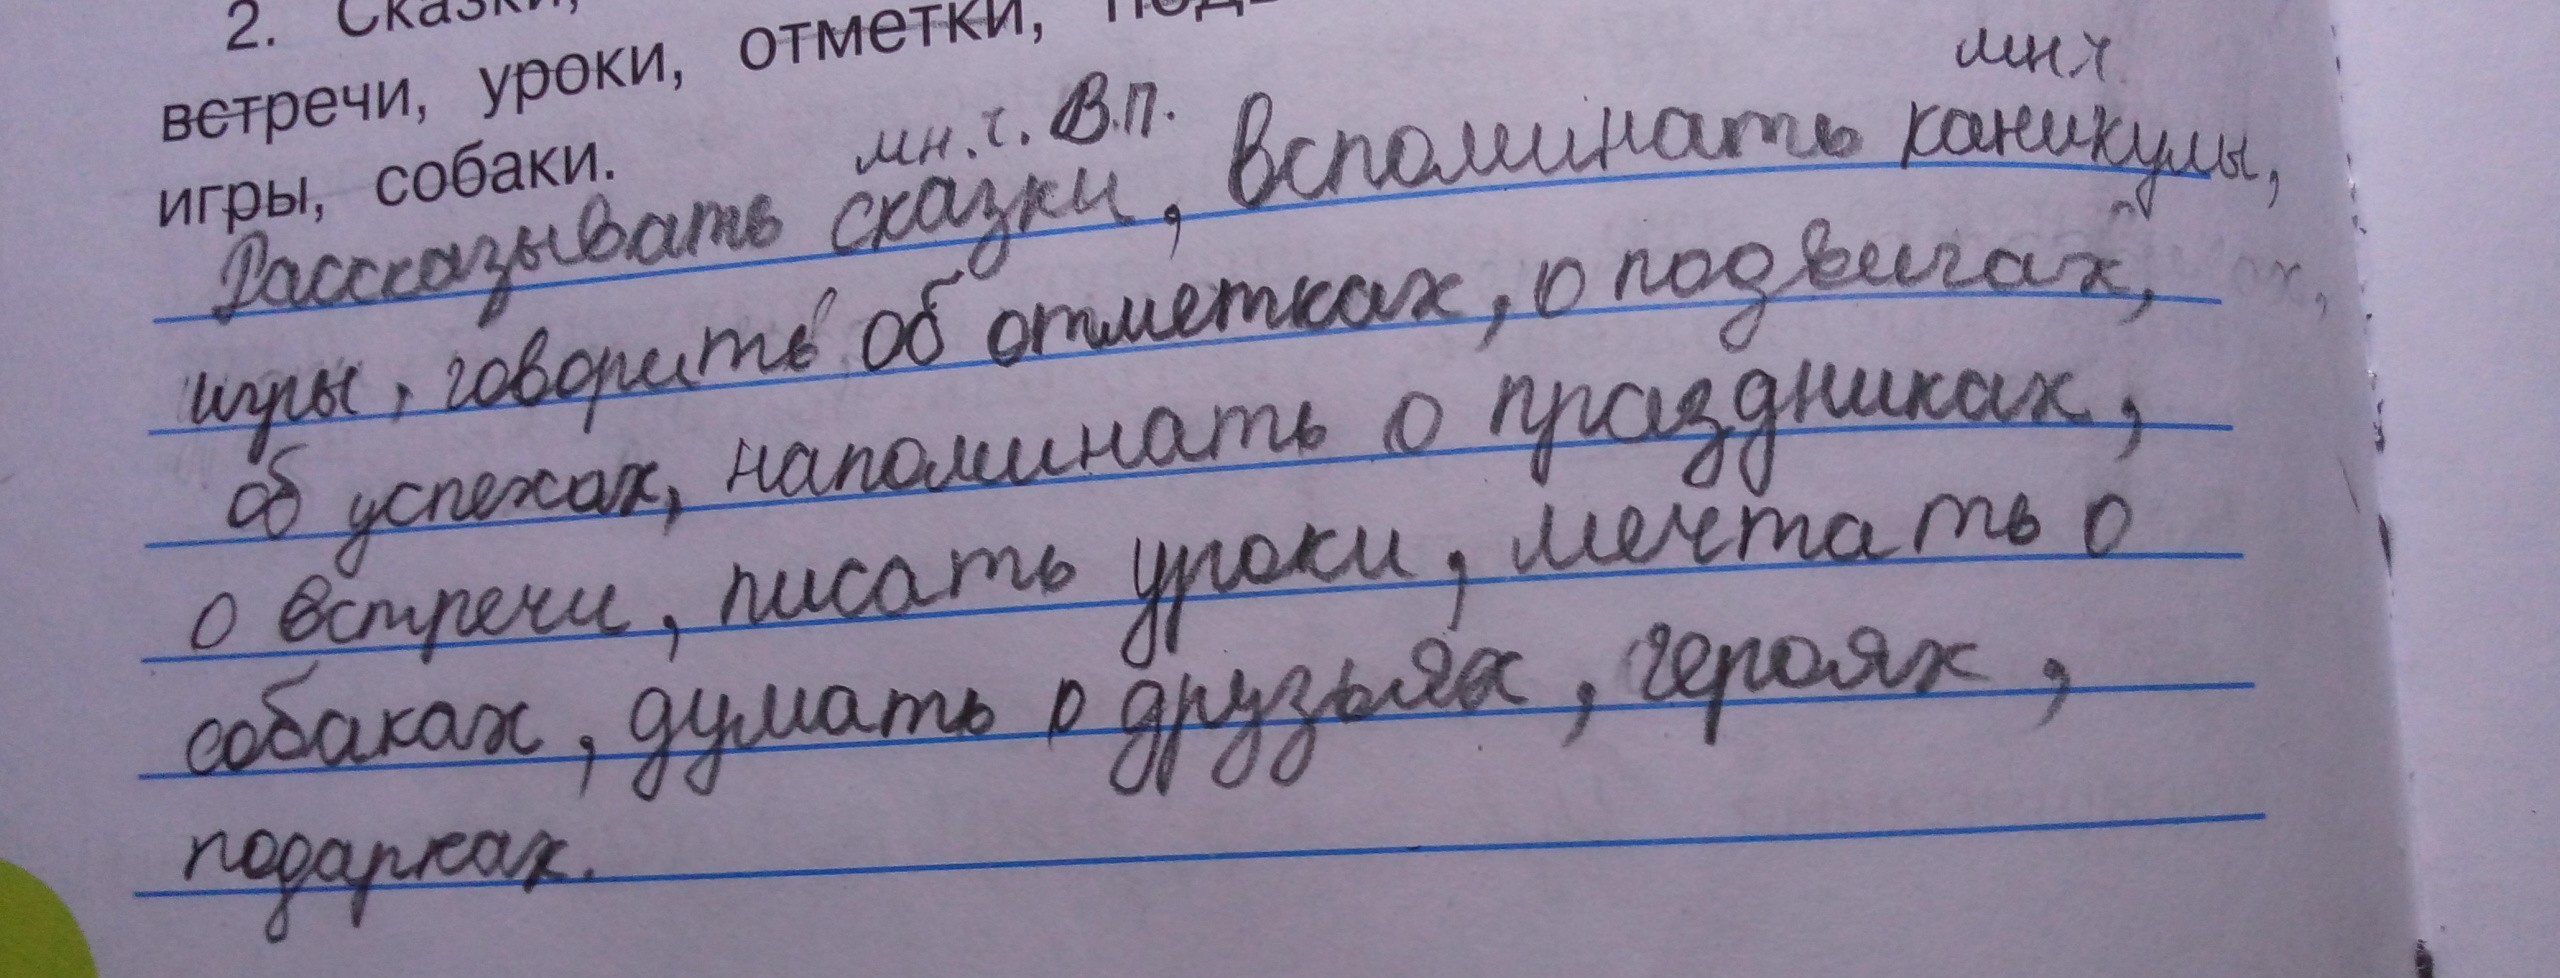 2. Сказки,
встречи, уроки, отметки,
игры, собаки.
мн.ч. В.п. мн ч
Рассказывать сказки, вспоминать каникулы,
игры, говорить об отметках, о подвигах,
об успехах, напоминать о праздниках,
о встречи, писать уроки, мечтать о
собаках, думать о друзьях, героях,
подарках.